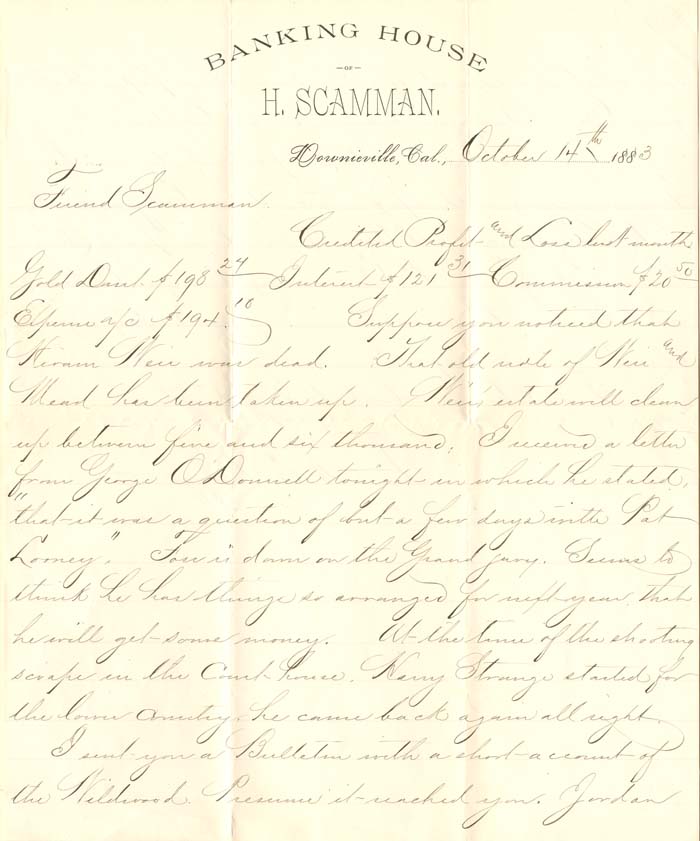 BANKING HOUSE
—OF—
H. SCAMMAN.
Downieville, Cal., October 14th 1883
Friend Scamman.
Credited Profit and Loss last month
Gold Dust $198 24 Interest $121 31 Commission $20 50
Expense a/c $194. 10 Suppose you noticed that
Hiram Weir was dead. That old note of Weir and
Mead has been taken up. Weirs estate will clean
up between five and six thousand; I received a letter
from George O'Donnell tonight in which he stated,
"that it was a question of but a few days with Pat
Looney." is down on the Grand jury. Seems to
think he has things so arranged for next year, that
he will get some money. At the time of the shooting
scrape in the Court house, Harry Strange started for
the lower country, he came back again all right.
I sent you a Bulletin with a short account of
the Wildwood. Presume it reached you. Jordan